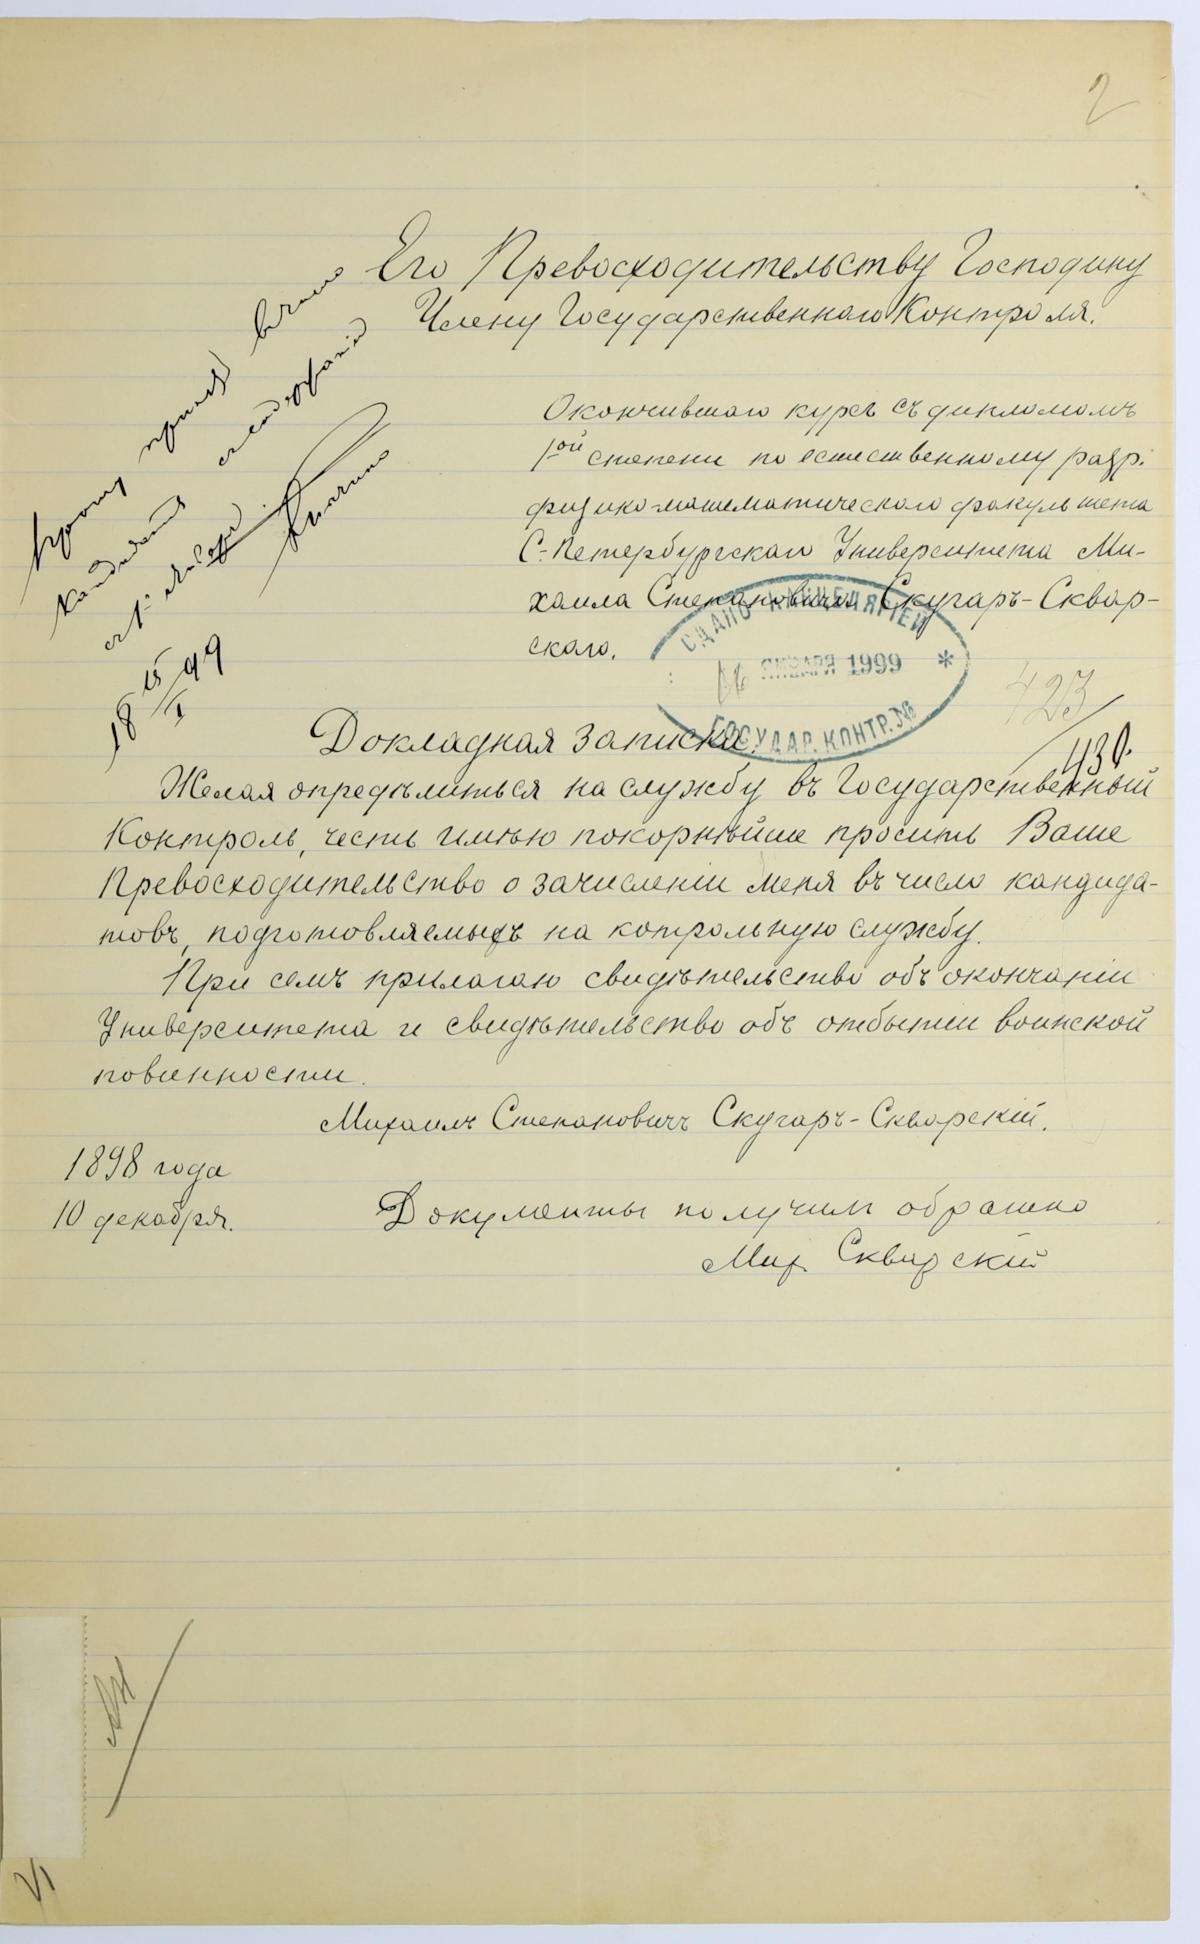 2
Его Превосходительству Господину
Члену Государственнаго Контроля.
Прошу принять
кандидатомъ съ содержаніе
съ 1 Января
18 15/I 99
Окончившаго курсъ съ дипломомъ
1ой степени по естественному разр.
физико-математическаго факультета
С.-Петербургскаго Университета Ми-
хаила Степановича Скугаръ-Сквар-
скаго.
СДАНО КАНЦЕЛЯРІЕЙ
ЯНВАРЯ 1999 *
ГОСУДАР. КОНТР. №
423
430.
Докладная Записка.
Желая опредѣлиться на службу въ Государственный
Контроль, честь имѣю покорнѣйше просить Ваше
Превосходительство о зачисленіи меня въ число кандида-
товъ, подготовляемыхъ на контрольную службу.
При семъ прилагаю свидѣтельство объ окончаніи
Университета и свидѣтельство объ отбытіи воинской
повинности.
Михаилъ Степановичъ Скугаръ-Скварскій.
1898 года
10 декабря.
Документы получилъ обратно
Мих. Скварскій